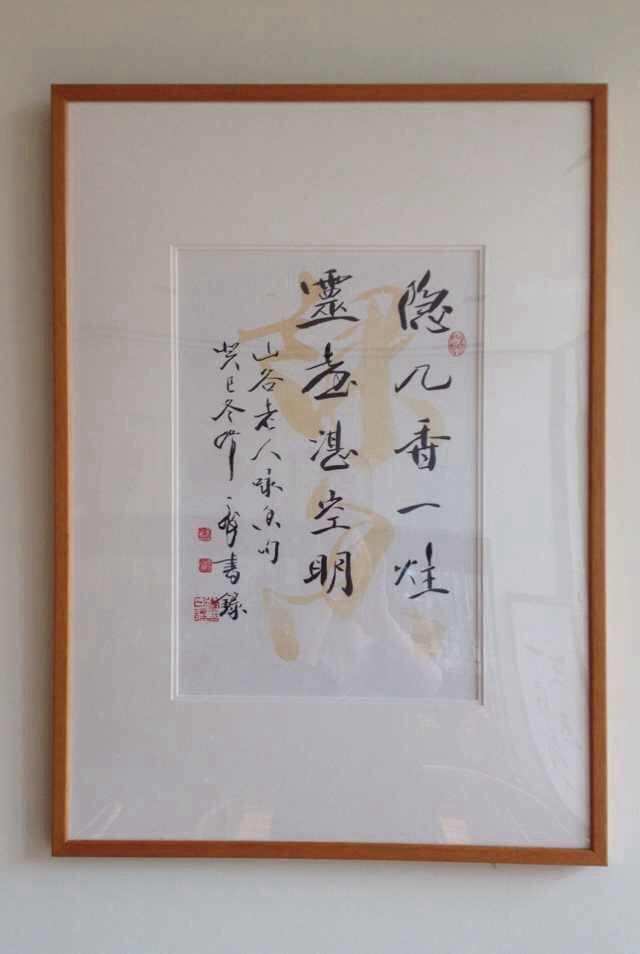 隐几香一炷
靈臺湛空明
山谷老人咏香句
癸巳冬
書錄